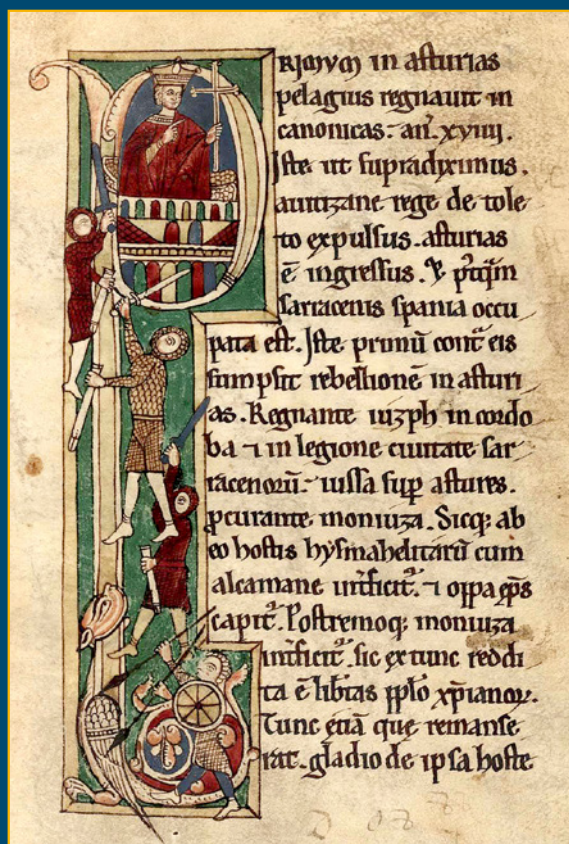 PRIMUM in asturias
pelagius regnauit in
canonicas. an̄. xviiii.
Iste ut supradiximus.
auitizane rege de tole
to expulsus. asturias
ē ingressus. & p̄tq̄m
sarracenis spania occu
pata est. Iste primū cont̄ eis
sumpsit rebellionē in asturi
as. Regnante iuzph in cordo
ba ⁊ in legione ciuitate sar
racenorū. iussa sup̄ astures.
ꝓcurante moniuza. Sicq; ab
eo hostis hysmahelitarū cum
alcamane int̄ficit̄. ⁊ oppa ep̄s
capit̄. Postremoq; moniuza
int̄ficit̄. sic ex tunc reddi
ta ē lib̄tas pp̄lo xp̄ianoꝝ.
Tunc etiā que remanse
rat. gladio de ipsa hoste